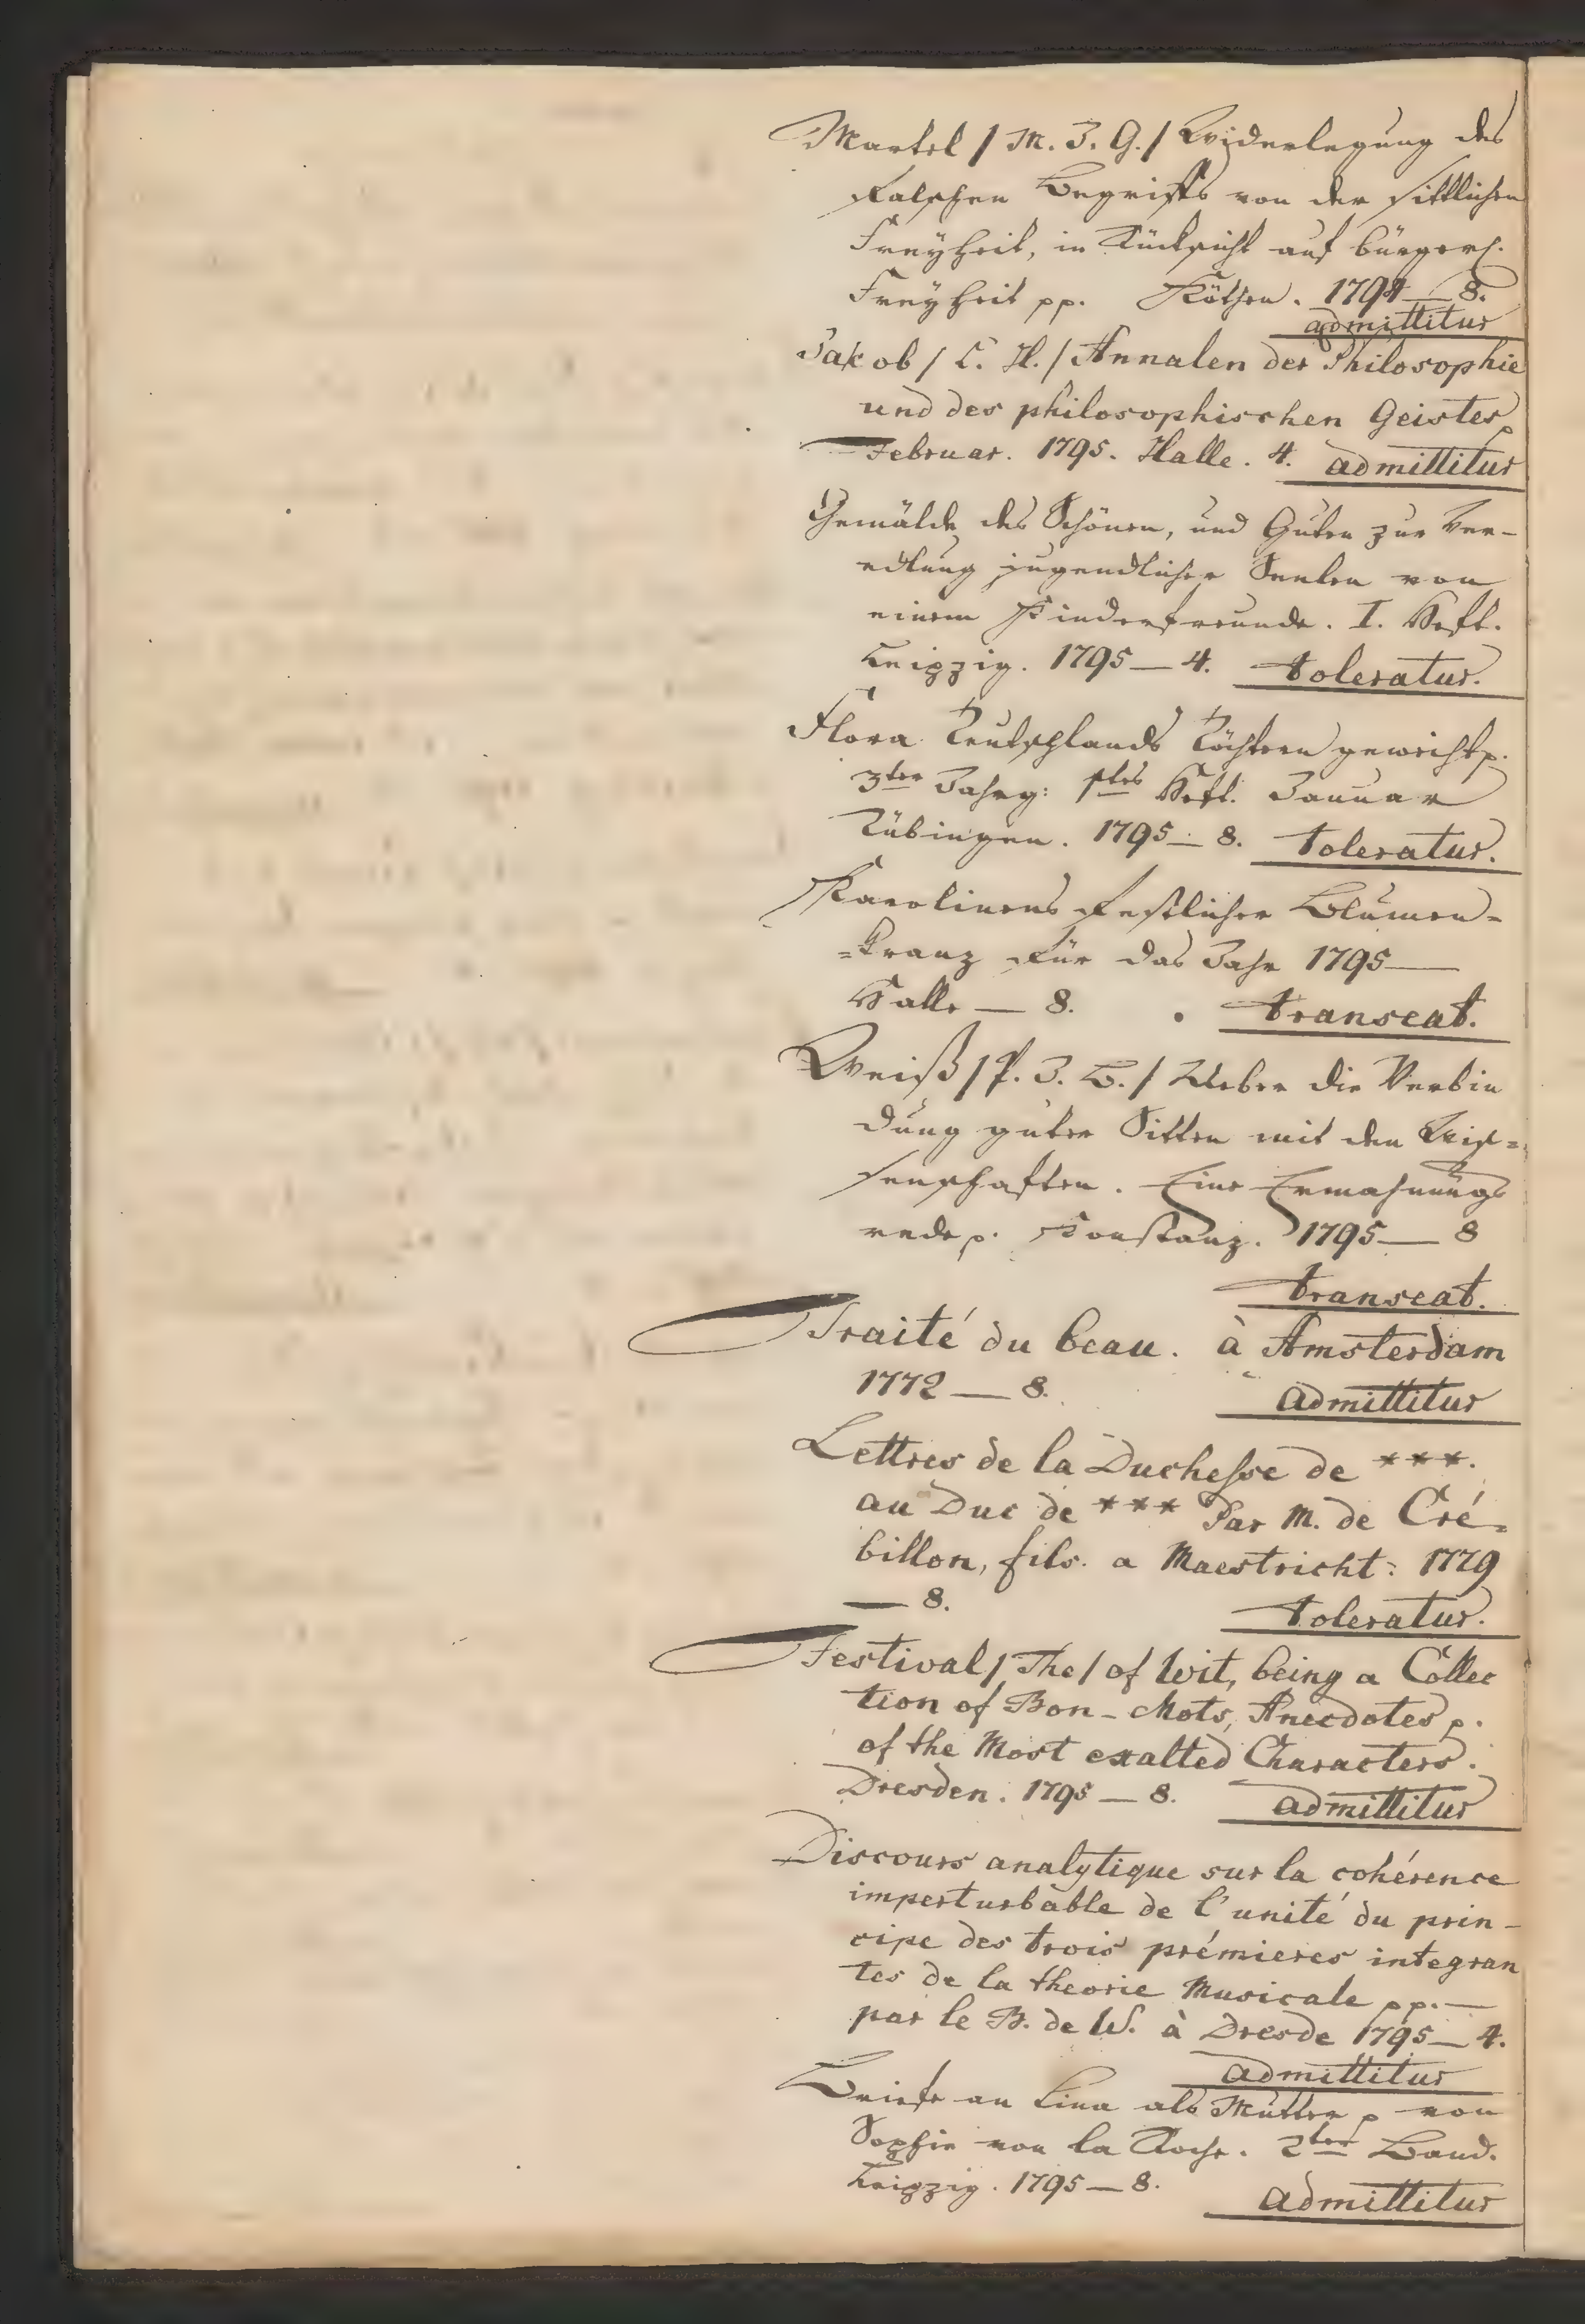 Martel / M. J. G. / Widerlegung des
falschen Begriffs von der sittlichen
Freyheit, in Rücksicht auf bürgerl.
Freyheit pp. Köthen. 1794 — 8.
admittitur
Jakob / L. H. / Annalen der Philosophie
und des philosophischen Geistes p
Februar. 1795. Halle. 4. admittitur
Gemälde des Schönen, und Guten zur Ver-
edlung jugendlicher Seelen von
einem Kinderfreunde. I. Heft.
Leipzig. 1795 — 4. toleratur.
Flora Teutschlands Töchtern geweiht p.
3ter Jahrg: 1tes Heft. Januar
Tübingen. 1795 — 8. toleratur.
Karolinens festlicher Blumen-
=kranz für das Jahr 1795 —
Halle — 8. transeat.
Weiß / P. J. B. / Ueber die Verbin
dung guter Sitten mit den Wis=
senschaften. Eine Ermahnungs
rede p. Konstanz. 1795 — 8
transeat.
Traité du beau. à Amsterdam
1772 — 8. admittitur
Lettres de la Duchesse de ***.
au Duc de *** Par M. de Cré=
billon, fils. a Maestricht: 1779
— 8. toleratur.
Festival / The / of Wit, being a Collec
tion of Bon-Mots, Anecdotes p.
of the Most exalted Characters.
Dresden. 1795 — 8. admittitur
Discours analytique sur la cohérence
imperturbable de l'unité du prin-
cipe des trois prémieres integran
tes de la theorie Musicale pp. —
par le B. de W. à Dresde 1795 — 4.
admittitur
Briefe an Lina als Mutter p von
Sophie von la Roche. 2ter Band.
Leipzig. 1795 — 8. admittitur